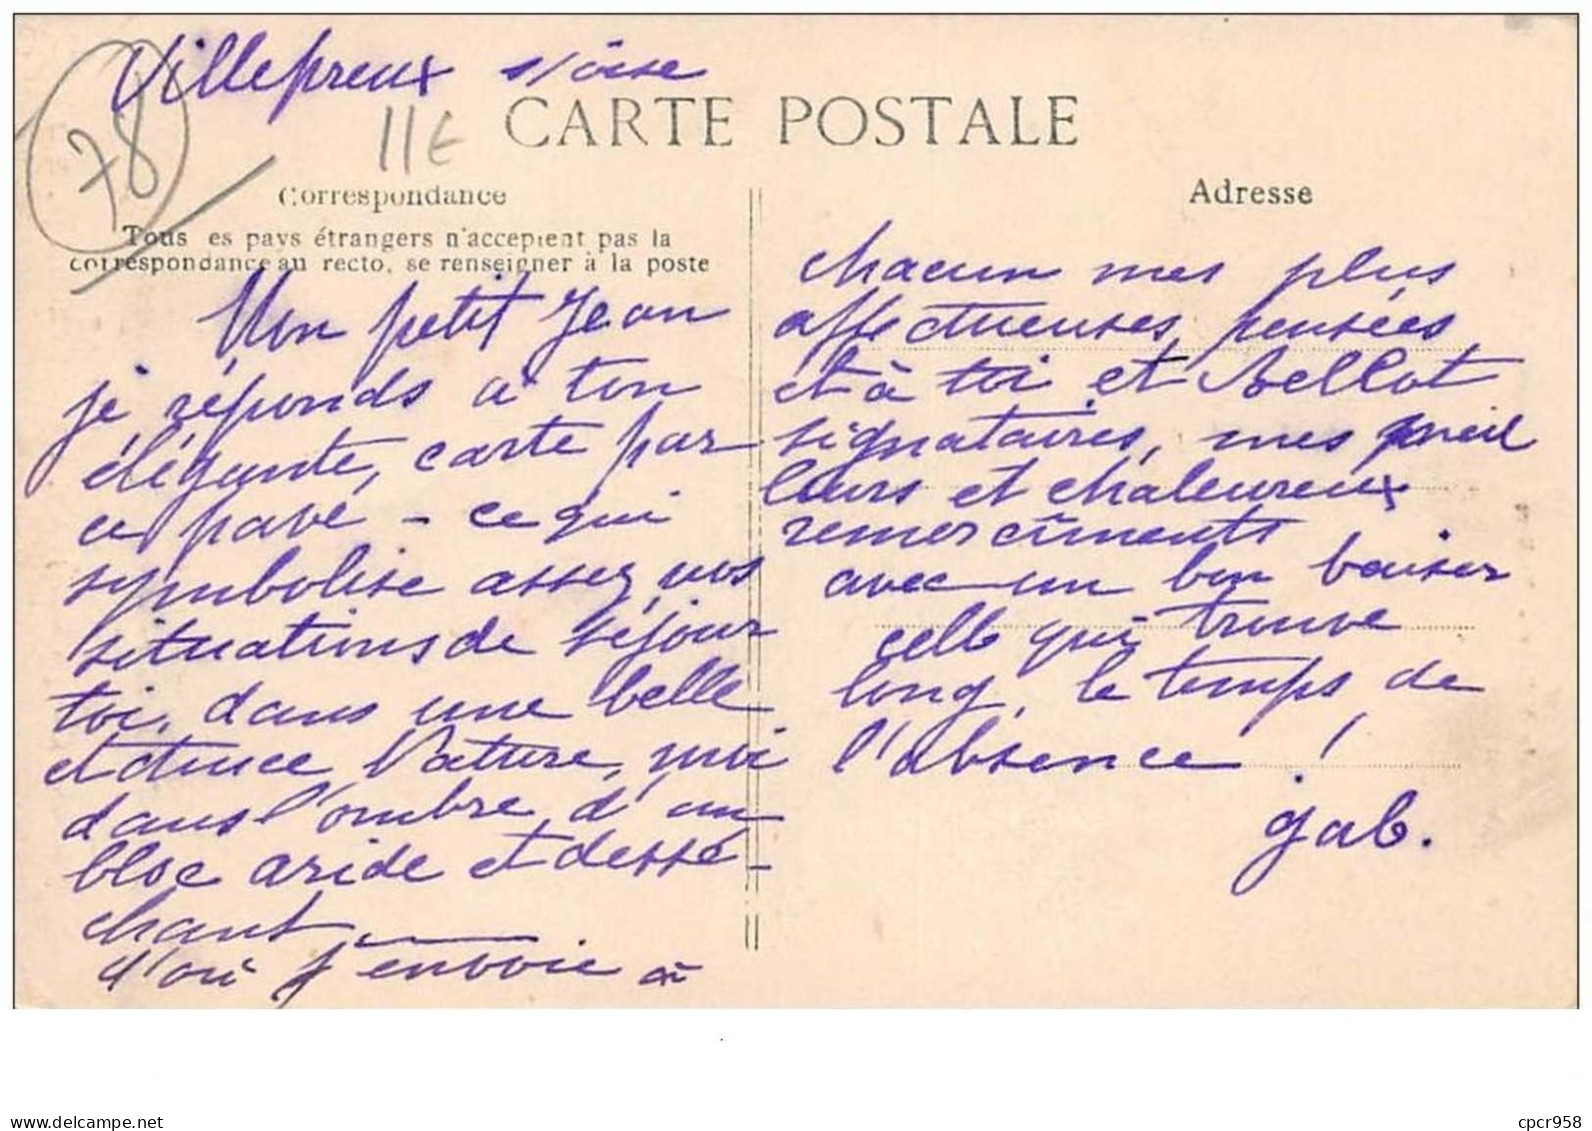 Villepreux s/oise
78
11€
CARTE POSTALE
Correspondance
Tous es pays étrangers n'acceptent pas la
correspondance au recto, se renseigner à la poste
Mon petit Jean
je réponds à ton
élégante, carte par
ce pavé - ce qui
symbolise assez, nos
situations de séjour
toi, dans une belle
et douce Nature, moi
dans l'ombre, d'un
bloc aride et dessé-
chant
d'où j'envoie à
Adresse
chacun mes plus
affectueuses, pensées,
et à toi et Bellot
signataires, mes meil
leurs et chaleureux
remerciments
avec un bon baiser
celle qui trouve
long, le temps de
l'absence !
Gab.
Delcampe.net
cpcr958